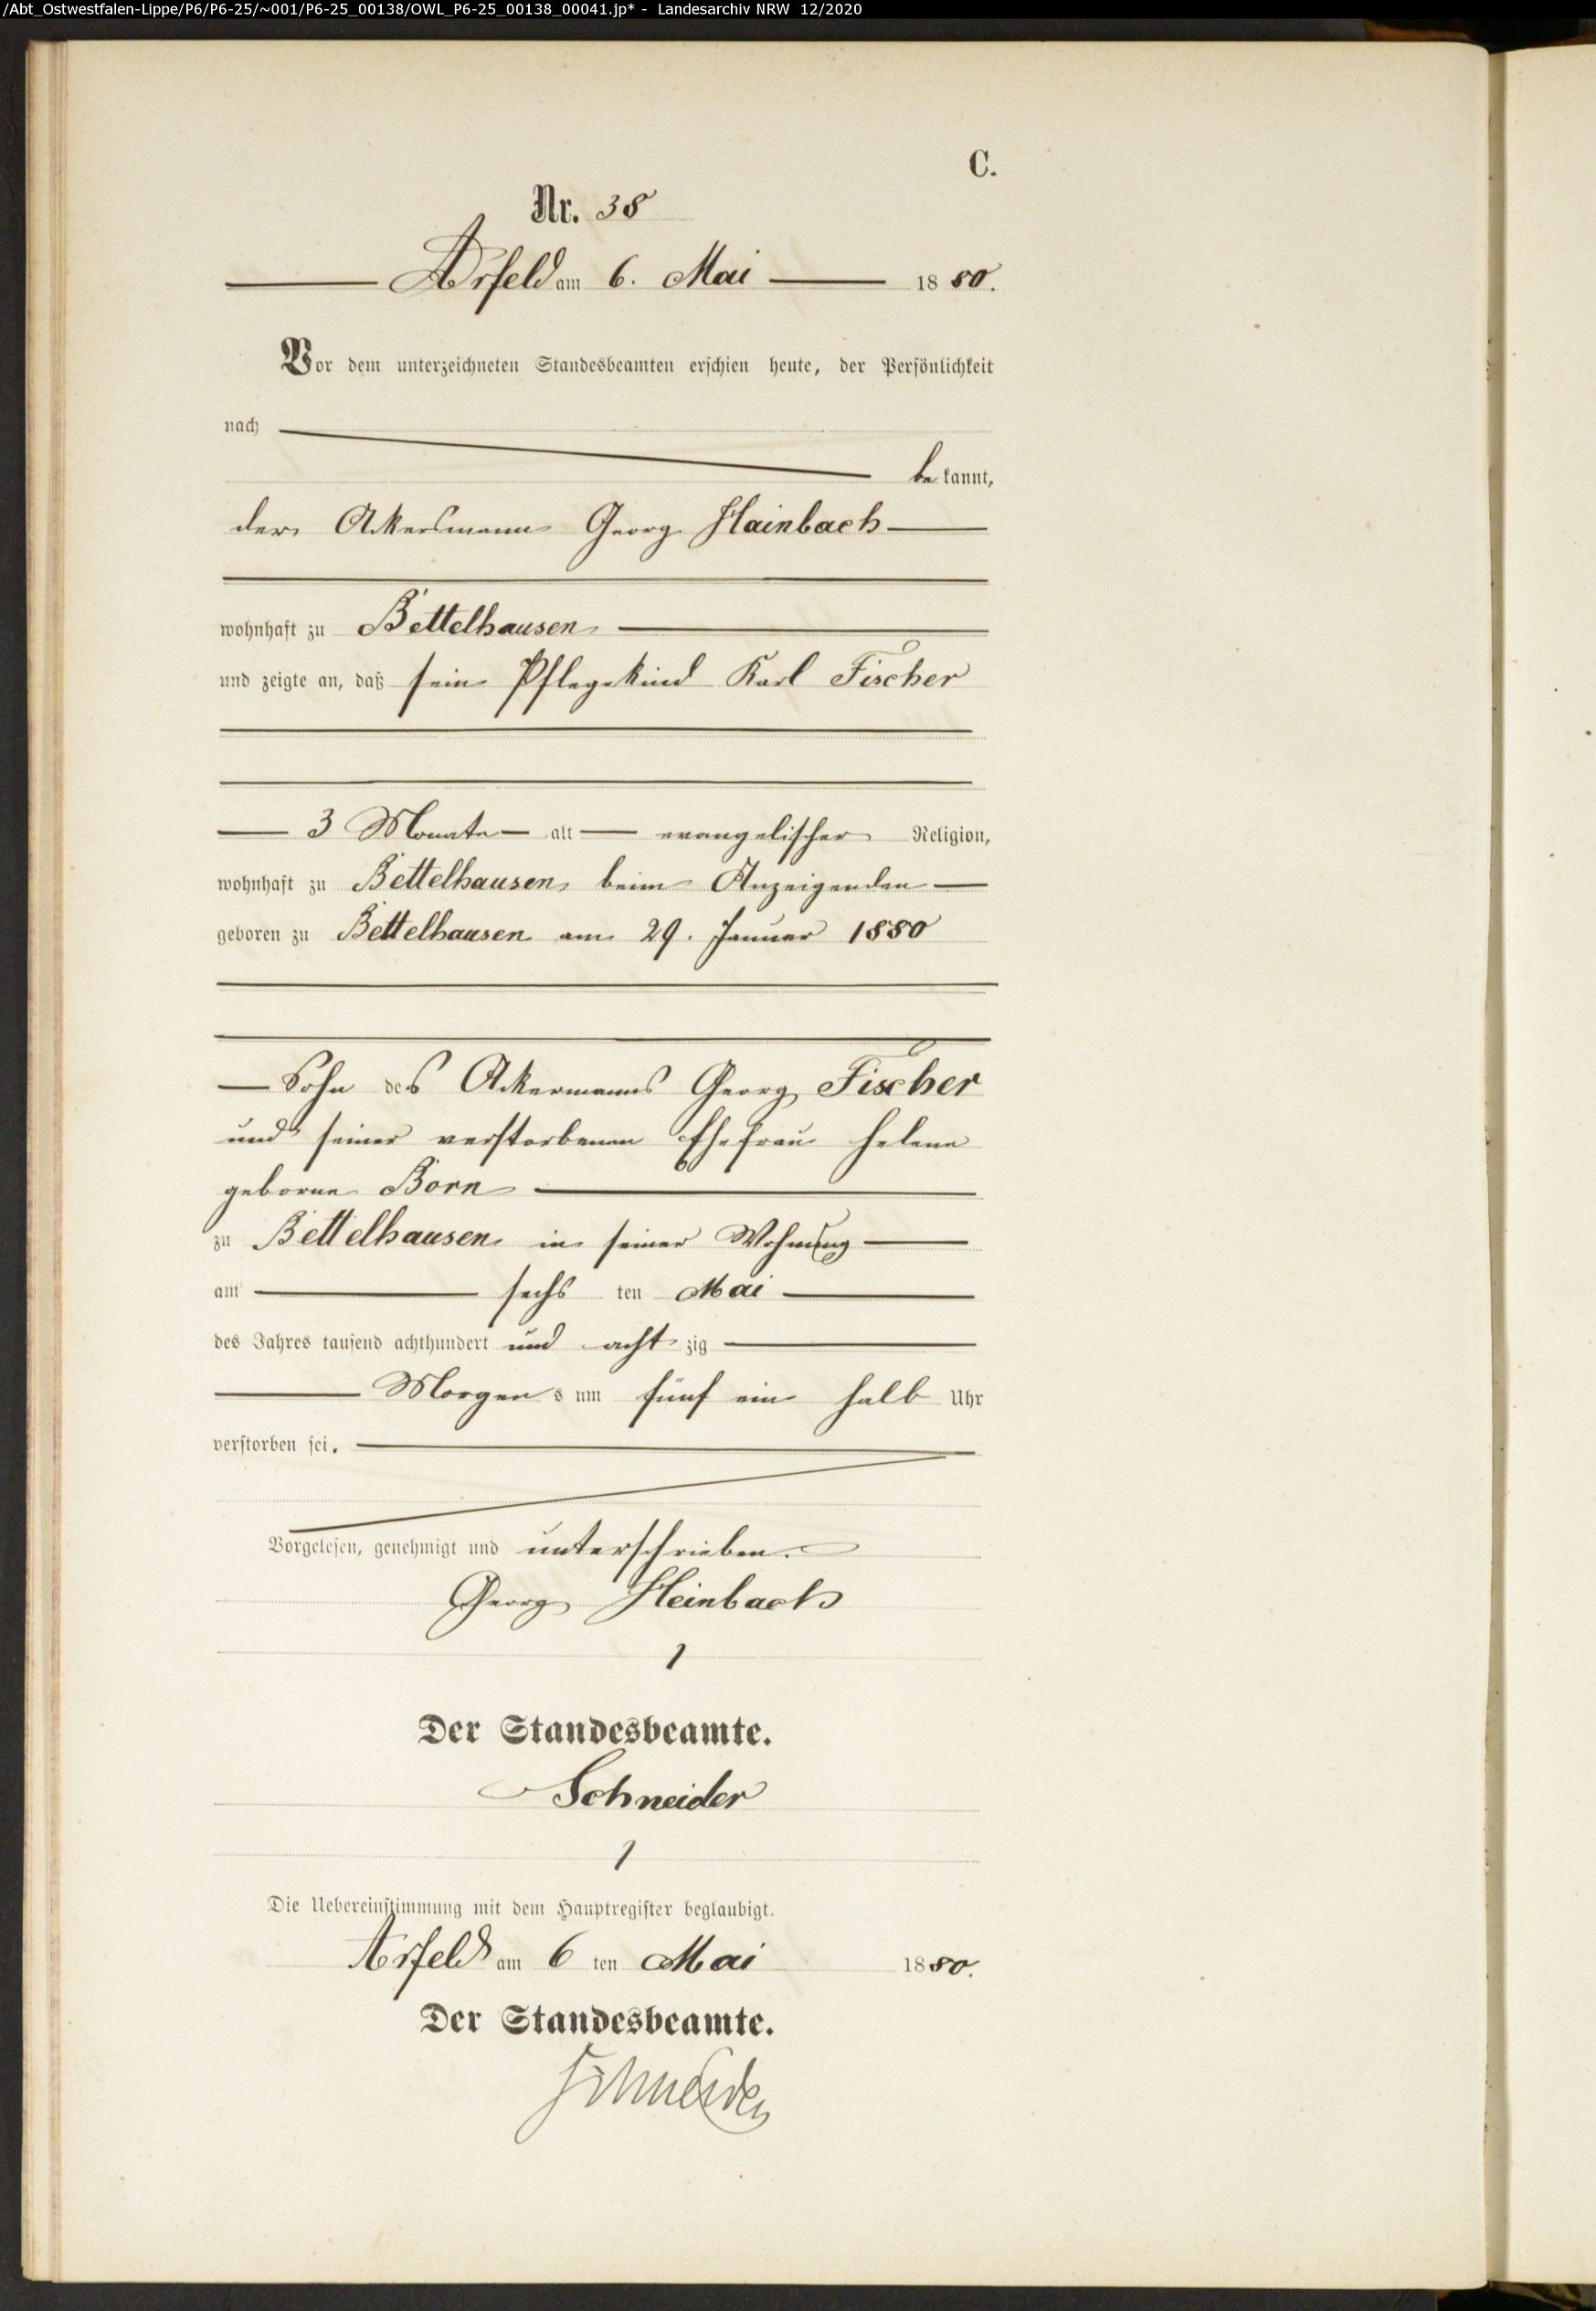 /Abt_Ostwestfalen-Lippe/P6/P6-25/~001/P6-25_00138/OWL_P6-25_00138_00041.jp* - Landesarchiv NRW 12/2020
C.
Nr. 38
Arfeld am 6. Mai 1880.
Vor dem unterzeichneten Standesbeamten erschien heute, der Persönlichkeit
nach
bekannt,
der Akersmann Georg Hainbach
wohnhaft zu Bettelhausen
und zeigte an, daß sein Pflegekind Karl Fischer
3 Monate alt evangelischer Religion,
wohnhaft zu Bettelhausen beim Anzeigenden
geboren zu Bettelhausen am 29. Januar 1880
Sohn des Ackermanns Georg Fischer
und seiner verstorbenen Ehefrau Helene
geborne Born
zu Bettelhausen in seiner Wohnung
am sechs ten Mai
des Jahres tausend achthundert und achtzig
Morgens um fünf ein halb Uhr
verstorben sei.
Vorgelesen, genehmigt und unterschrieben.
Georg Heinbach
Der Standesbeamte.
Schneider
Die Uebereinstimmung mit dem Hauptregister beglaubigt.
Arfeld am 6 ten Mai 1880.
Der Standesbeamte.
Schneider